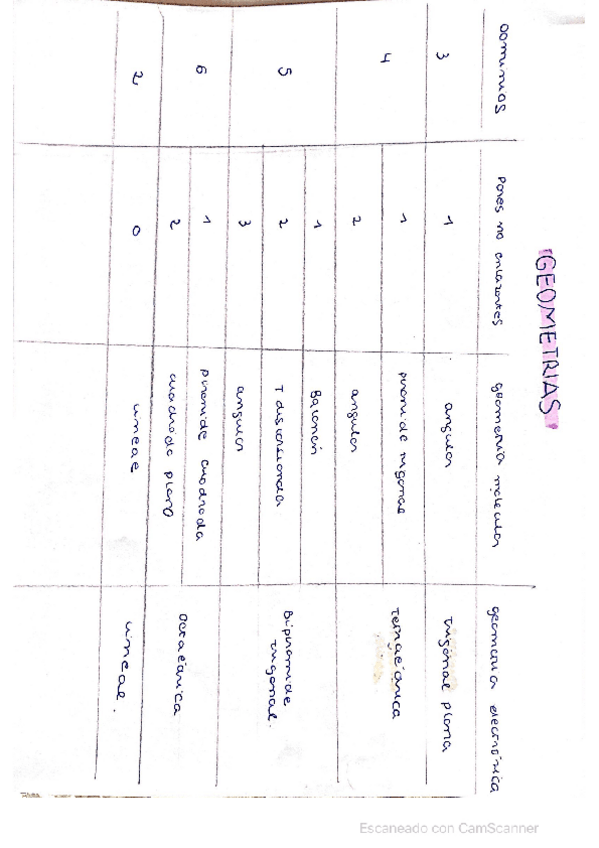 GEOMETRIAS
Dominios Pares no enlazantes geometria molecular geometria electrónica
3 1 angular trigonal plana
4 1 piramide trigonal Tetraédrica
2 angular
5 1 Balancín Bipiramide trigonal.
2 T distorsionada
3 angular
6 1 piramide cuadrada Octaédrica
2 cuadrado plano
2 0 lineal lineal.
Escaneado con CamScanner